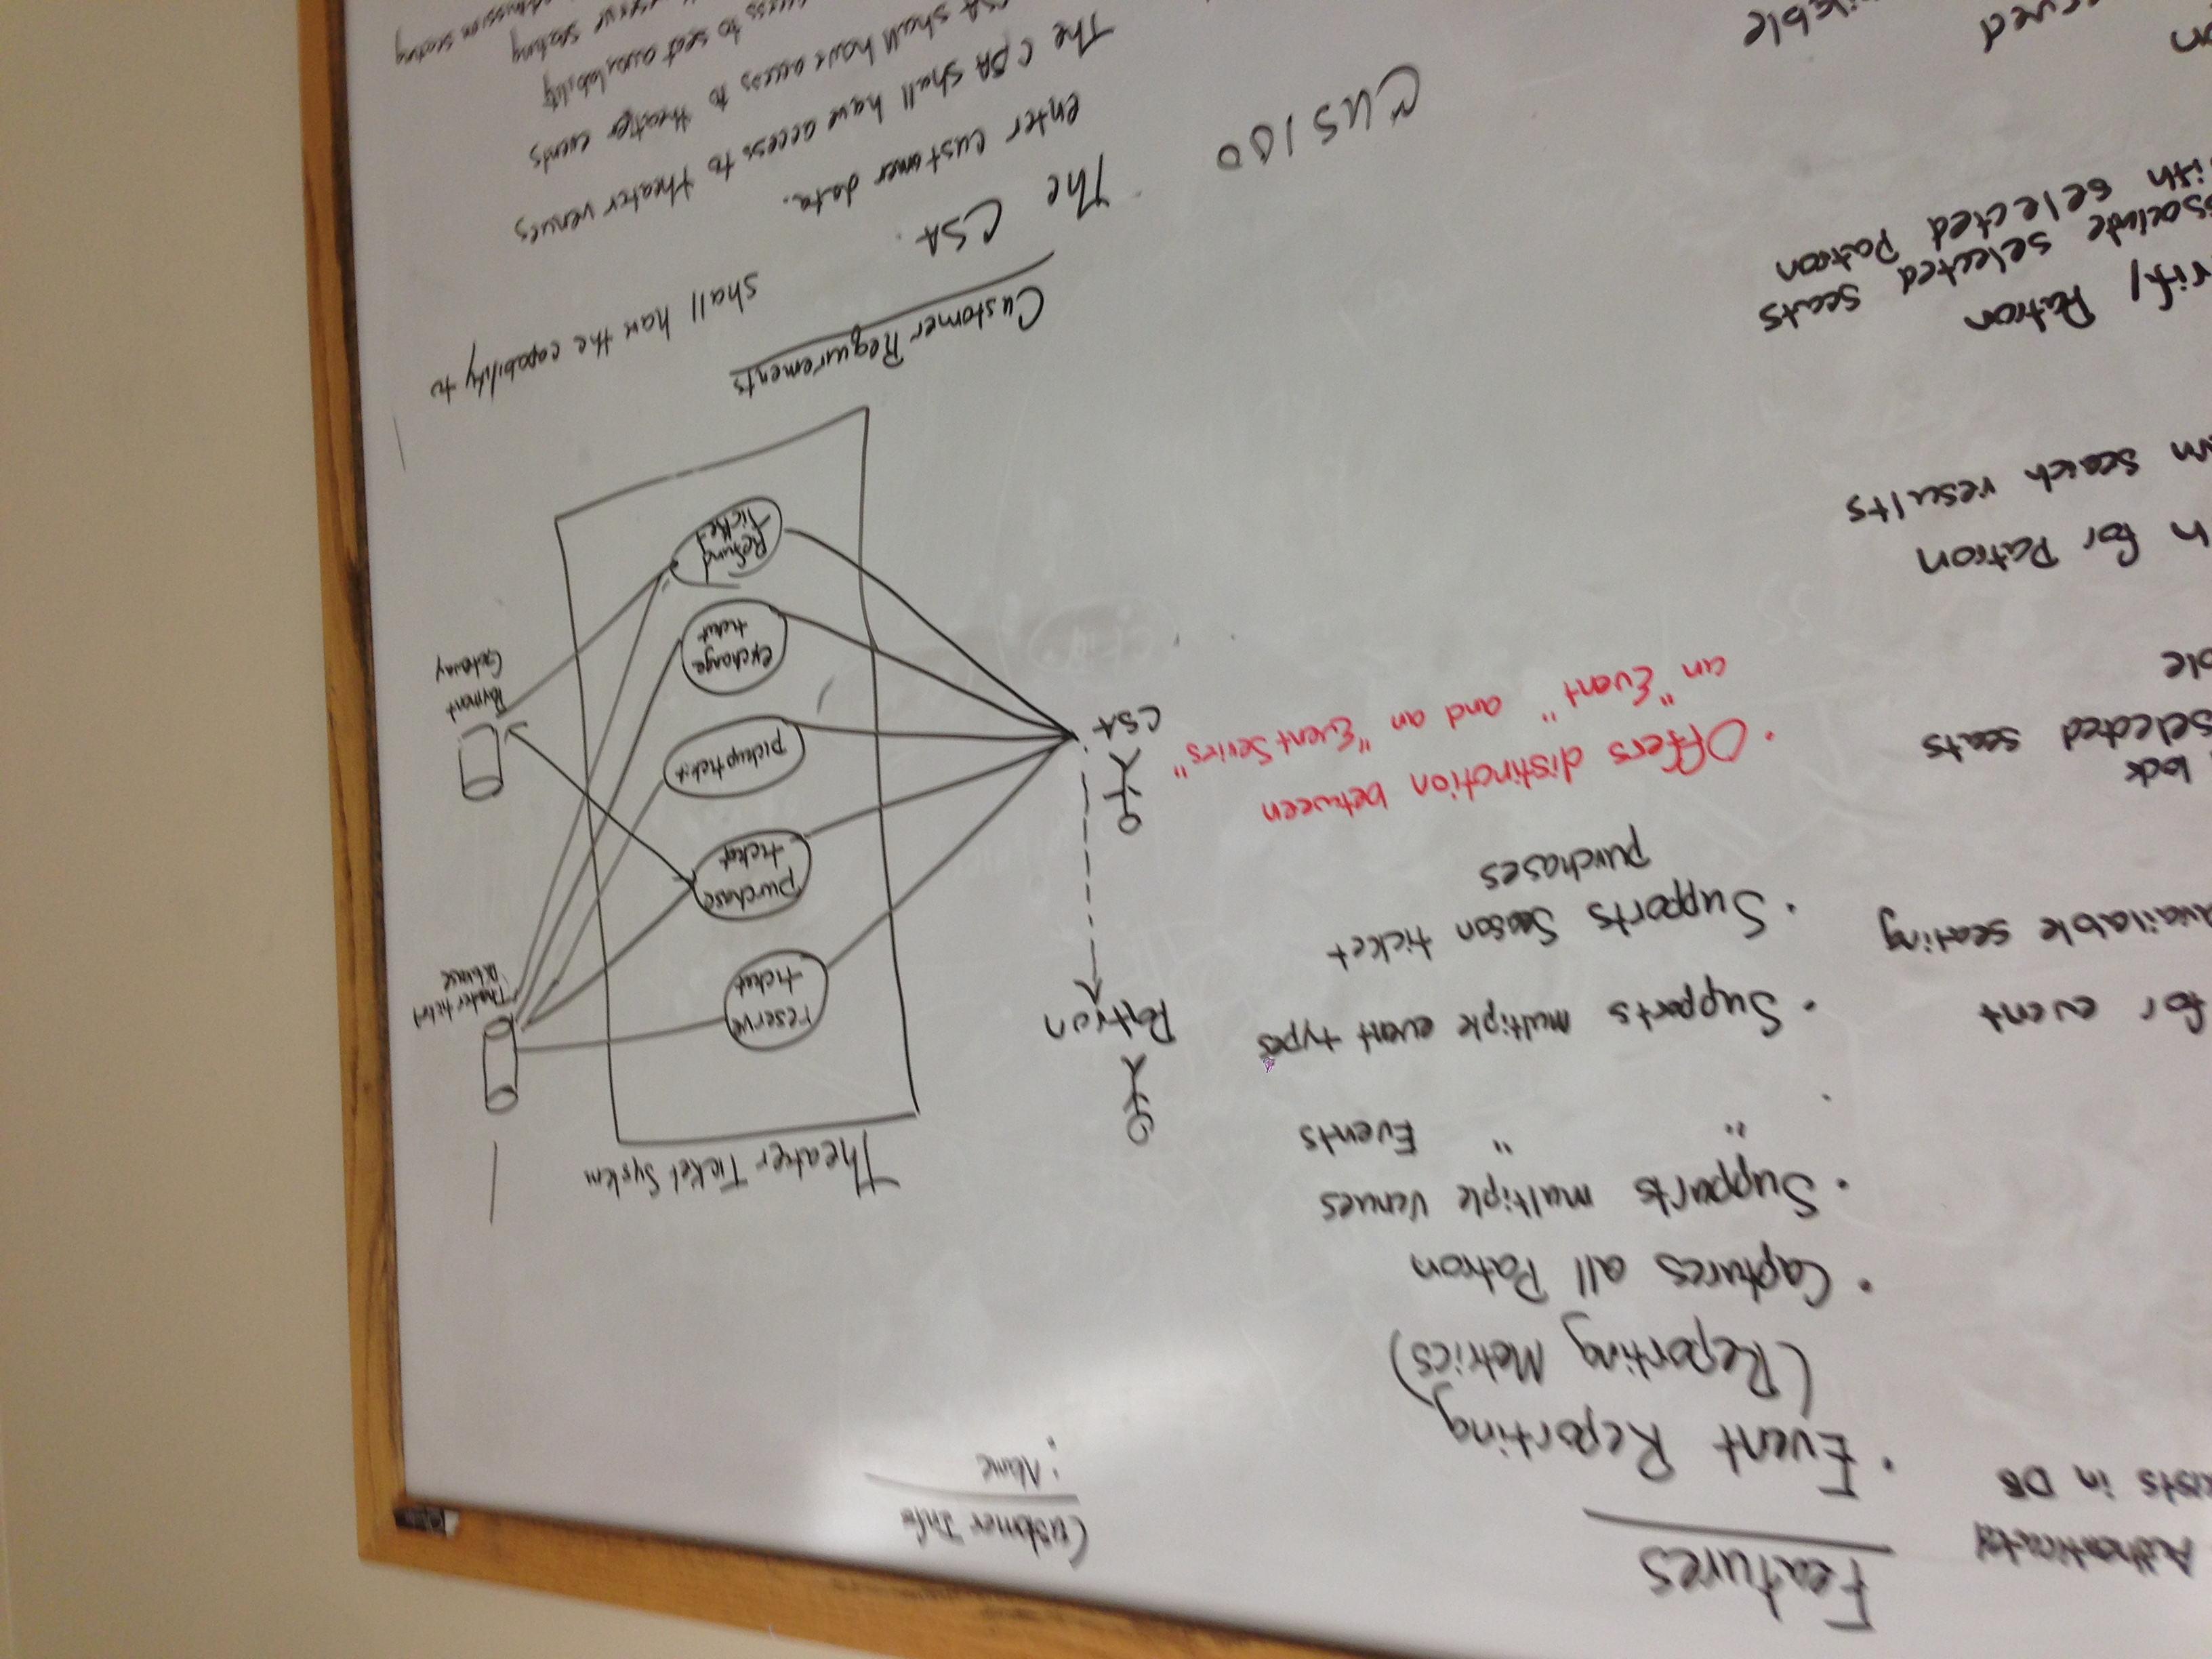 Authenticated
in DB
for event
available seating
lock
selected seats
for Patron
search results
Patron
selected seats
with selected Patron
Features
• Event Reporting
(Reporting Metrics)
• Captures all Patron
• Supports multiple Venues
• " " Events
• Supports multiple event types
• Supports Season ticket
purchases
• Offers distinction between
an "Event" and an "Event Series"
Customer Info
• Name
•
Theater Ticket System
Patron
CSA
reserve
ticket
purchase
ticket
pickup ticket
exchange
ticket
Refund
Ticket
Theater ticket
Database
Payment
Gateway
Customer Requirements
CUS100
The CSA shall have the capability to
enter customer data.
The CSA shall have access to theater venues
CSA shall have access to theater events
access to seat availability
reserve seating
admission seating